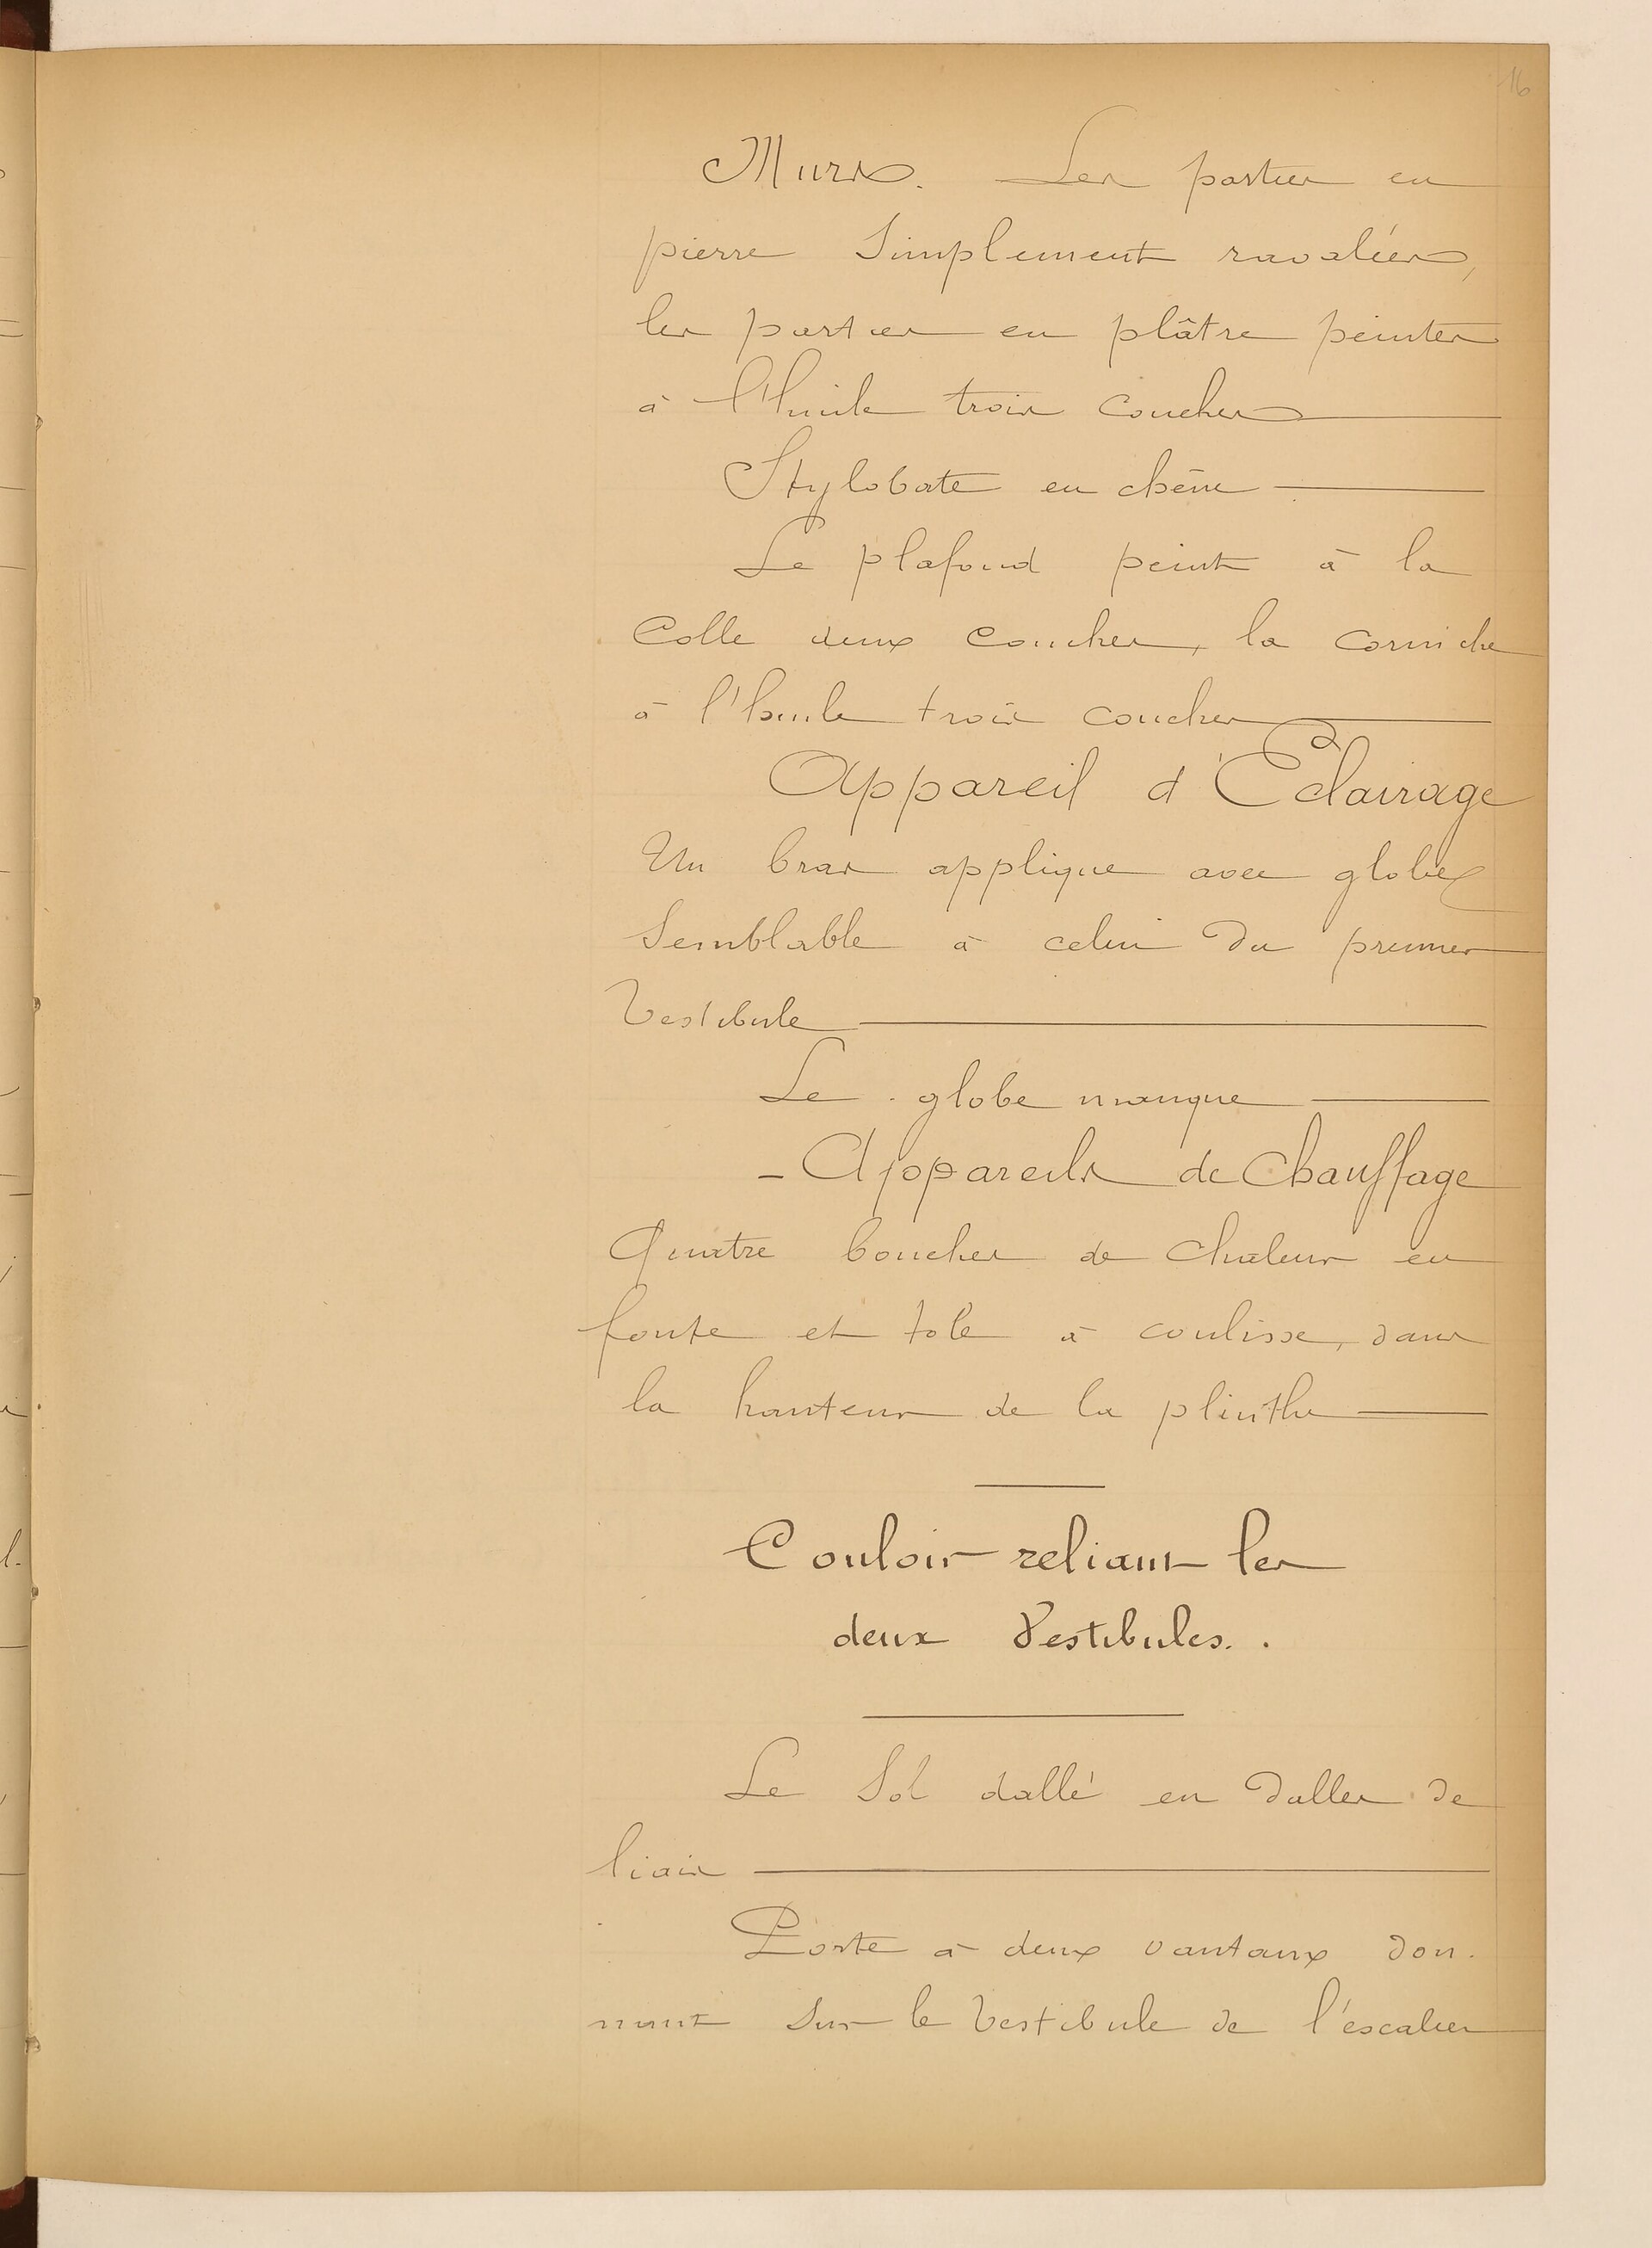 16
Murs. Les parties en
pierre Simplement ravalées,
les parties en plâtre peintes
à l'huile trois couches
Stylobate en chêne
Le plafond peint à la
Colle deux couches, la corniche
à l'huile trois couches
Appareil d'Eclairage
Un bras applique avec globe
Semblable à celui du premier
Vestibule
Le globe manque
- Appareils de Chauffage
Quatre bouches de chaleur en
fonte et tole à coulisse, dans
la hauteur de la plinthe
Couloir reliant les
deux Vestibules.
Le Sol dallé en dalles de
liais
Porte à deux vantaux don-
nant Sur le Vestibule de l'escalier